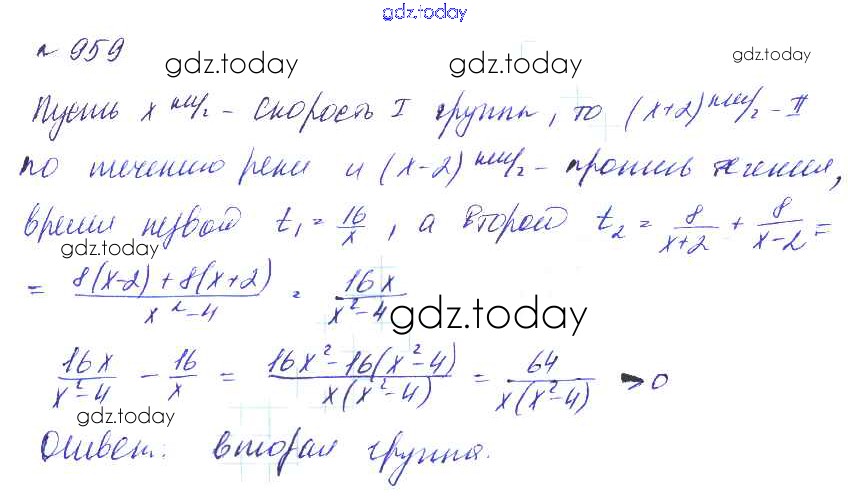 gdz.today
№ 959
gdz.today gdz.today
Пусть x км/г - скорость I группы, то (x+2) км/г - II
по течению реки и (x-2) км/г - против течения,
время первой t₁ = 16/x, а второй t₂ = 8/(x+2) + 8/(x-2) =
gdz.today gdz.today
= (8(x-2)+8(x+2))/(x²-4) = 16x/(x²-4)
gdz.today
16x/(x²-4) - 16/x = (16x²-16(x²-4))/(x(x²-4)) = 64/(x(x²-4)) > 0
gdz.today
Ответ: вторая группа.